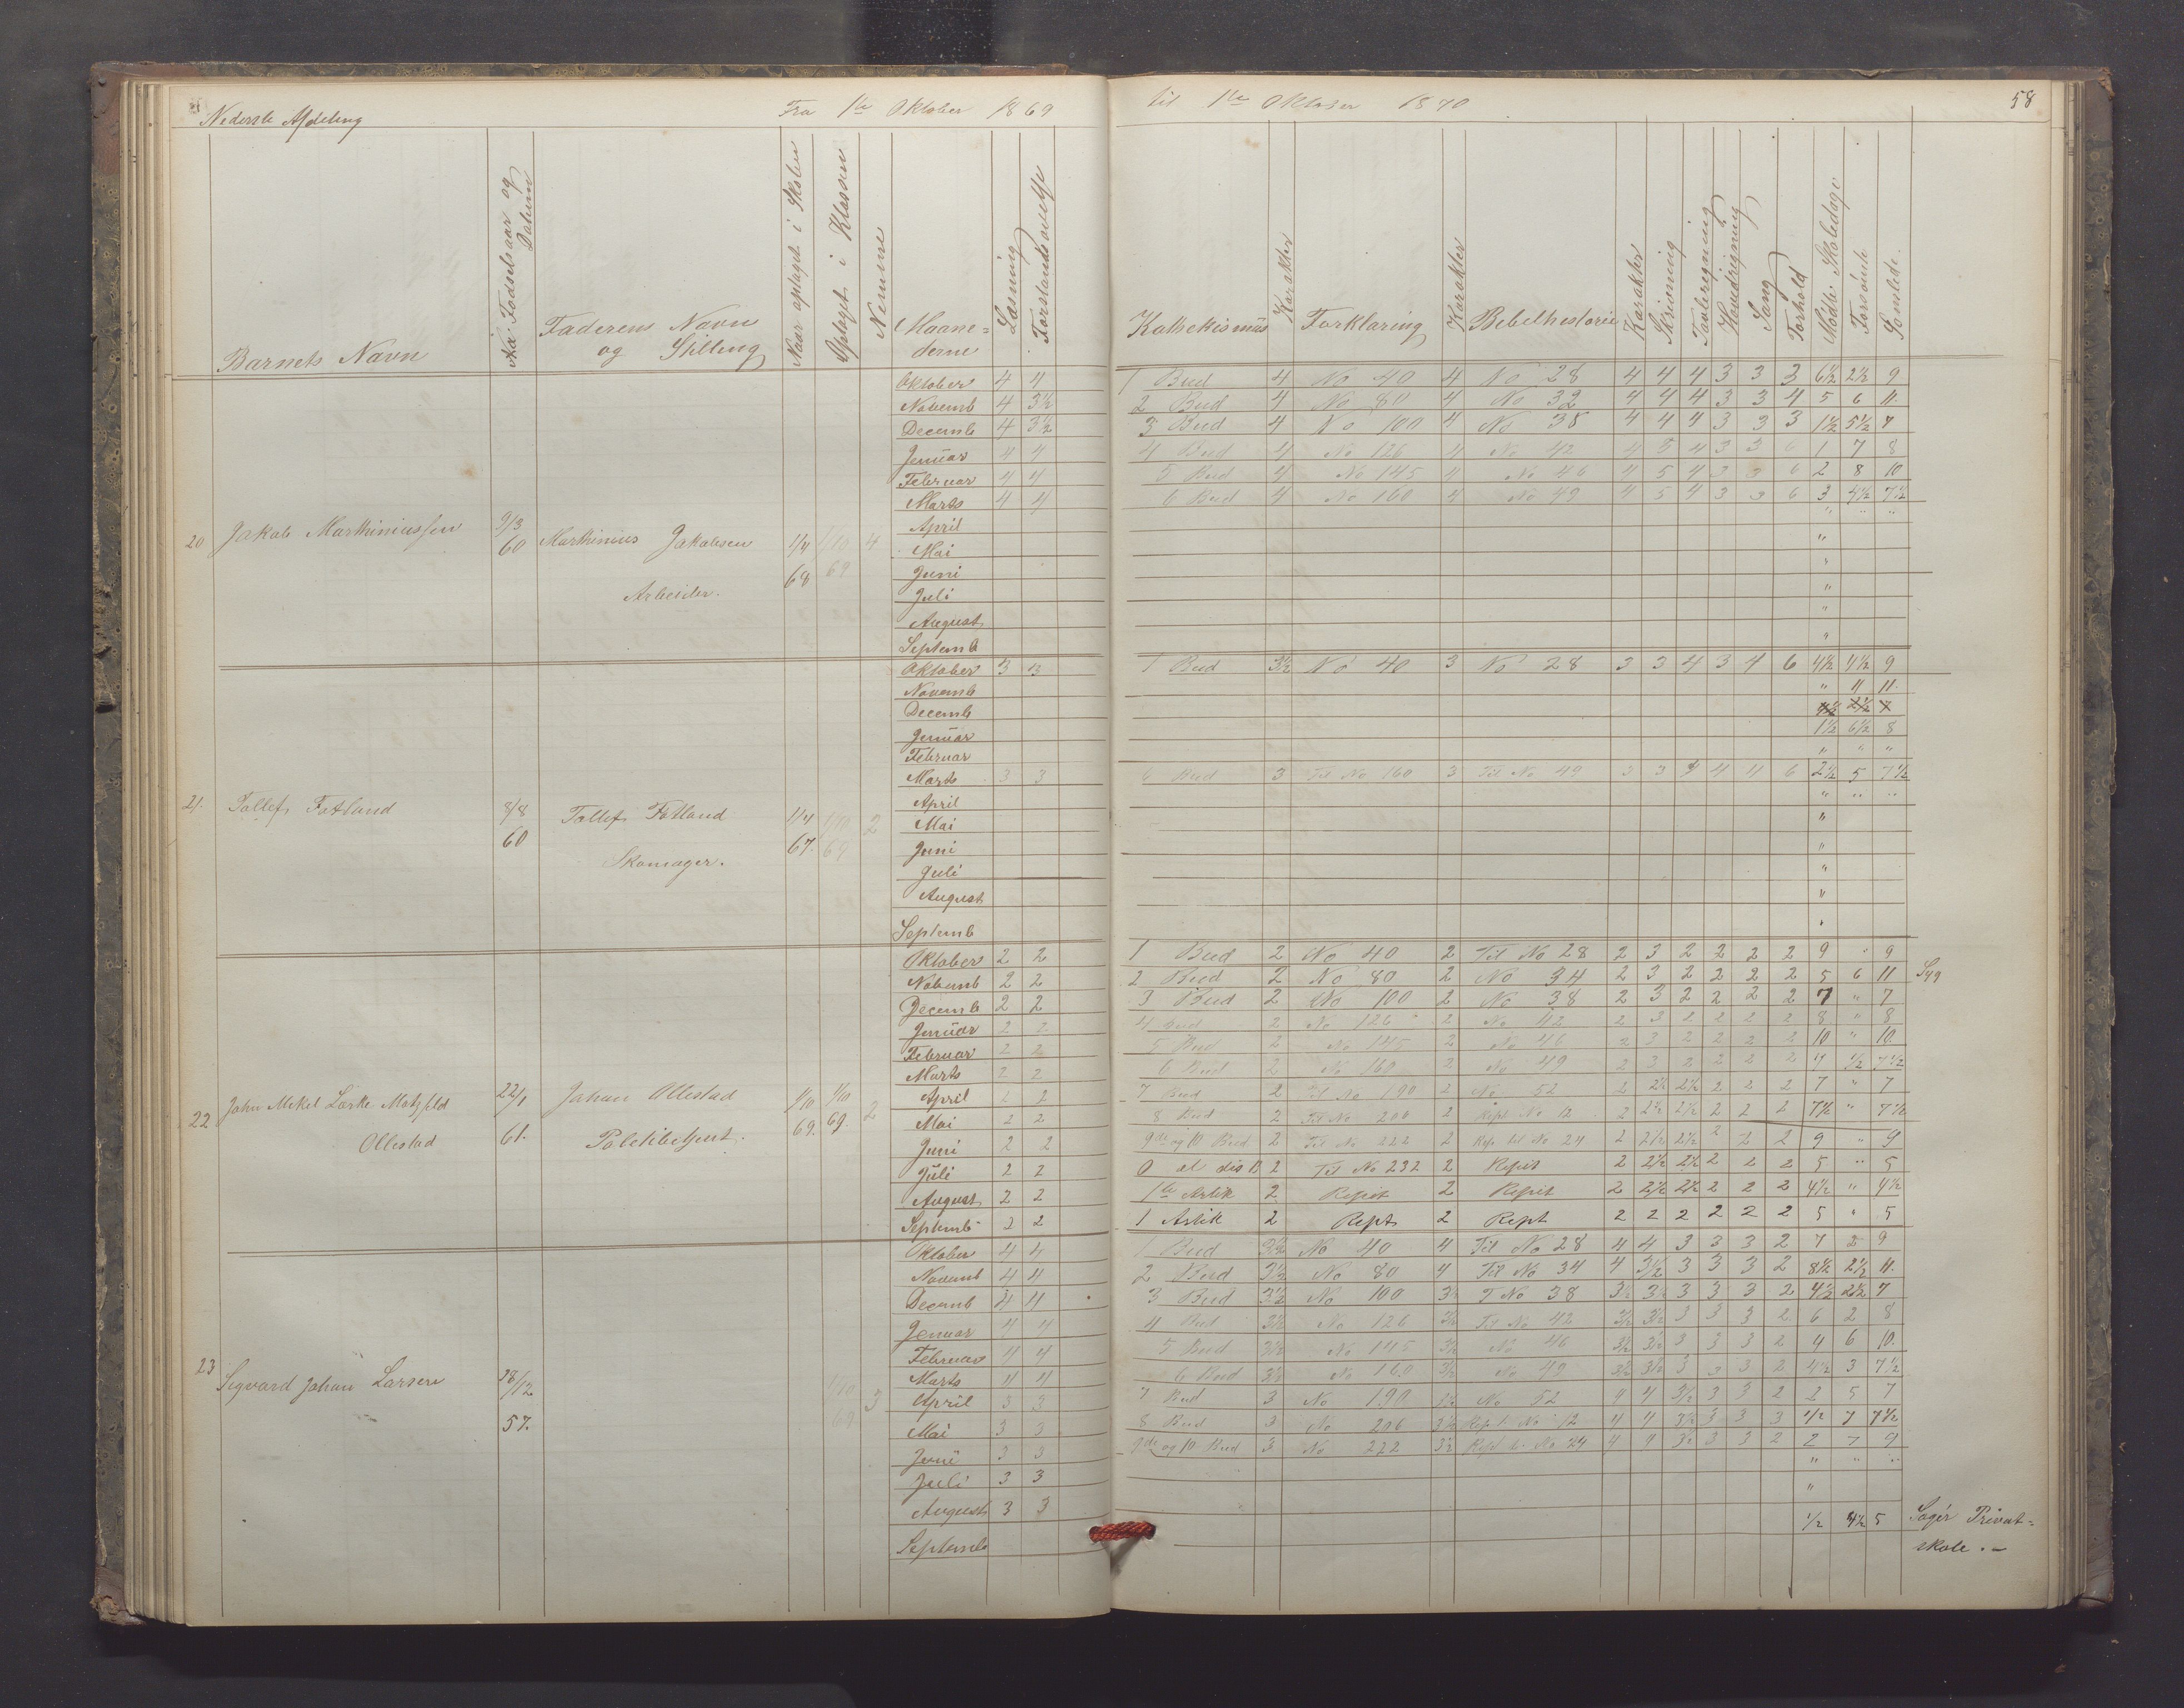 Nederste Afdeling Fra 1te Oktober 1869 til 1te Oktober 1870 58
Barnets Navn Fødselsaar og Datum Faderens Navn og Stilling Naar optaget i Skolen Optaget i Klassen Nemme Maanederne Læsning Forstandsøvelse Kathekismus Karakter Forklaring Karakter Bibelhistorie Karakter Skrivning Tavleregning Hovedregning Sang Forhold Mødte Skoledage Forsømte Samlede
Oktober 4 4 1 Bud 4 No 40 4 No 28 4 4 4 3 3 3 6½ 2½ 9
Novemb 4 3½ 2 Bud 4 No 80 4 No 32 4 4 4 3 3 4 5 6 11
Decemb 4 3½ 3 Bud 4 No 100 4 No 38 4 4 4 3 3 3 1½ 5½ 7
Januar 4 4 4 Bud 4 No 126 4 No 42 4 5 4 3 3 6 1 7 8
Februar 4 4 5 Bud 4 No 145 4 No 46 4 5 4 3 3 6 2 8 10
Marts 4 4 6 Bud 4 No 160 4 No 49 4 5 4 3 3 6 3 4½ 7½
April " " "
20 Jakob Marthiniussen 9/3 60 Marthinius Jakobsen Arbeider. 1/4 68 1/10 69 4
Mai "
Juni "
Juli "
August "
Septemb "
Oktober 3 3 1 Bud 3½ No 40 3 No 28 3 3 4 3 4 6 4½ 4½ 9
Novemb " 11 11.
Decemb 4½ 2½ 7
Januar 1½ 6½ 8
Februar " " "
Marts 3 3 6 Bud 3 Til No 160 3 Til No 49 3 3 4 4 6 2½ 5 7½
April " " "
21. Tollef Fotland 8/8 60 Tollef Fotland Skomager. 1/4 67. 1/10 69 2
Mai "
Juni "
Juli "
August "
Septemb "
Oktober 2 2 1 Bud 2 No 40 2 Til No 28 2 3 2 2 2 2 9 " 9
Novemb 2 2 2 Bud 2 No 80 2 No 34 2 3 2 2 2 2 5 6 11 Syg
Decemb 2 2 3 Bud 2 No 100 2 No 38 2 3 2 2 2 2 7 " 7
Januar 2 2 4 Bud 2 No 126 2 No 42 2 3 2 2 2 2 8 " 8
Februar 2 2 5 Bud 2 No 145 2 No 46 2 3 2 2 2 2 10 " 10.
Marts 2 2 6 Bud 2 No 160 2 No 49 2 3 2 2 2 2 7 ½ 7½
22 Jahn Mikel Lærke Ollestad 22/1 61. Johan Ollestad Politibetjent. 1/10 69. 1/10 69. 2
April 2 2 7 Bud 2 Til No 190 2 No 52 2 2½ 2½ 2 2 2 7 " 7
Mai 2 2 8 Bud 2 Til No 206 2 Rept No 12 2 2½ 2½ 2 2 2 7½ " 7½
Juni 2 2 9de og 10 Bud 2 Til No 222 2 Rep til No 24 2 2½ 2½ 2 2 2 9 " 9
Juli 2 2 2 Til No 232 2 Repit 2 2½ 2½ 2 2 2 5 " 5
August 2 2 1te Artik 2 Repit 2 Repit 2 2½ 2½ 2 2 2 4½ " 4½
Septemb 2 2 1 Artik 2 Rept 2 Rept 2 2 2 2 2 2 5 " 5
Oktober 4 4 1 Bud 3½ No 40 4 Til No 28 4 4 3 3 3 2 7 2 9
Novemb 4 4 2 Bud 3½ No 80 4 Til No 34 4 3½ 3 3 3 2 8½ 2½ 11.
Decemb 4 4 3 Bud 3½ No 100 3½ T No 38 3½ 3½ 3 3 3 2 4½ 2½ 7
Januar 4 4 4 Bud 3½ No 126 3½ Til No 42 3½ 3½ 3 3 3 2 6 2 8
Februar 4 4 5 Bud 3½ No 145 3½ No 46 3½ 3½ 3 3 3 2 4 6 10.
Marts 4 4 6 Bud 3½ No 160 3½ No 49 3½ 3½ 3 3 3 2 4½ 3 7½
23 Sigvard Johan Larsen /12 57. 1/10 69 3
April 3 3 7 Bud 3 No 190 3½ No 52 4 4 3½ 3 3 2 2 5 7
Mai 3 3 8 Bud 3 No 206 3½ Rept No 12 4 4 3½ 3 3 3 ½ 7 7½
Juni 3 3 9de og 10 Bud 3 No 222 3½ Rept t. No 24 4 4 3½ 3 3 2 2 7 9
Juli 3 3 " " "
August 3 3 "
Septemb ½ 4½ 5 Søger Privat=
skole.—